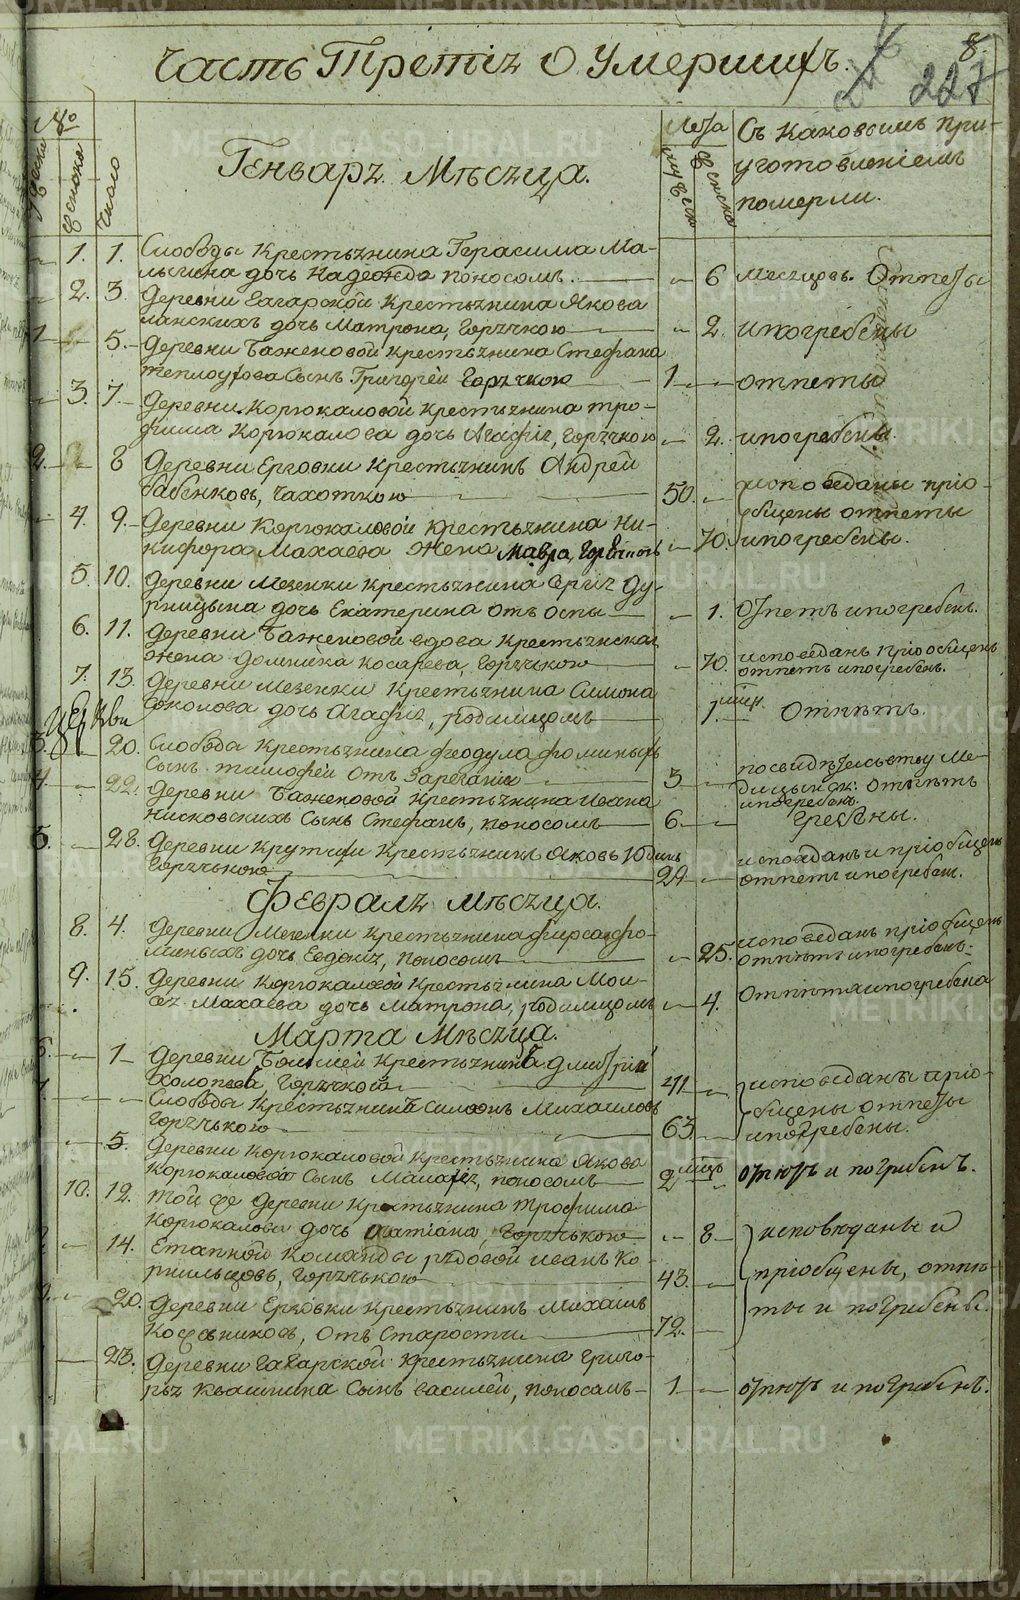 METRIKI.GASO-URAL.RU
8.
227
Часть Третія О Умершихъ.
№
женска
число
Генваря Мѣсяца.
Лета
мужеска
женска
Съ каковымъ при-
уготовленіемъ
померли.
1. 1. Слободы Крестьянина Герасима Ма-
лыгина дочь Надежда поносомъ. 6 месяцовъ. Отпеты
2. 3. Деревни Гагарской Крестьянина Якова
ланскихъ дочь Матрона, Горячкою 2. ипогребены
1 5. Деревни Баженовой крестьянина Стефана
теплоухова Сынъ Григорей Горячкою 1 отпеты
3. 7. Деревни Корюкаловой Крестьянина тро-
фима Корюкалова дочь Агафія, Горячкою 2. ипогребены.
2. 8 Деревни Ерзовки Крестьянинъ Андрей
бабенковъ, Чахоткою 50. исповеданы пріо-
4. 9. Деревни Корюкаловой крестьянина Ни-
бщены отпеты
кифора Махаева жена Мавра, Горячкою 70. ипогребены.
5. 10. Деревни Мезенки крестьянина Сергія Ду-
рницына дочь Екатерина отъ оспы 1. Отпетъ ипогребенъ.
6. 11. Деревни Баженовой вдова Крестьянская
жена домника Косарева, Горячькою 70. исповеданъ пріобщенъ
отпетъ ипогребенъ.
7. 13. Деревни Мезенки Крестьянина Симона
Соколова дочь Агафія, родимцомъ 1 мец. Отпѣтъ.
Церкви
3. 20. Слобода Крестьянина феодула фоминыхъ
Сынъ тимофей отъ 3 по свидѣтельству Ме-
дицынск: Отпѣтъ
ипогребенъ
4. 22. Деревни Баженовой Крестьянина Ивана
Нисковскихъ Сынъ Стефанъ, поносомъ 6. гребены.
5. 28. Деревни Крутихи Крестьянинъ Яковъ Юдинъ
Горячькою 24 исповеданъ и пріобщенъ
отпетъ ипогребенъ.
Февраля мѣсяца.
8. 4. Деревни Мезенки Крестьянина фирса фо-
миныхъ дочь Евдокія, поносомъ 25. исповеданъ пріобщенъ
отпѣтъ ипогребенъ.
9. 15. Деревни Корюкаловой Крестьянина Мои-
сея Махаева дочь Матрона, родимцомъ 4. Отпѣта ипогребена
Марта Мѣсяца.
6. 1 Деревни Крестьянинъ Дмитрій
холоповъ, Горячкой 41 исповеданы пріо-
Слободы Крестьянинъ Симеонъ Михаиловъ
бщены отпеты
Горячькою 63. ипогребены.
5. Деревни Корюкаловой Крестьянина Якова
Корюкаловой Сынъ Малафея, поносомъ 2 мцъ отпѣтъ и погребенъ.
10. 12. Той же Деревни Крестьянина Трофима
Корюкалова дочь татіана, Горячькою 8 исповѣданы и
14. Етапной Команды рядовой иванъ Ко-
рнильцовъ, Горячькою 43. пріобщены, отпѣ-
20. Деревни Ерзовки Крестьянинъ Михаилъ
ты и погребены.
Кожевниковъ, отъ Старости 72.
23. Деревни Гагарской Крестьянина Григо-
рья Квашнина Сынъ василей, поносомъ 1 отпѣтъ и погребенъ.